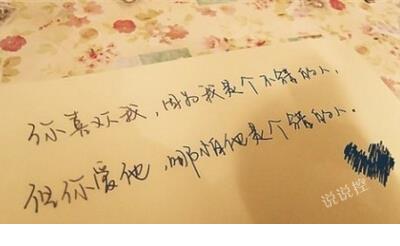 你喜欢我，因为我是个不错的人，
但你爱他，哪怕他是个错的人．
说说控